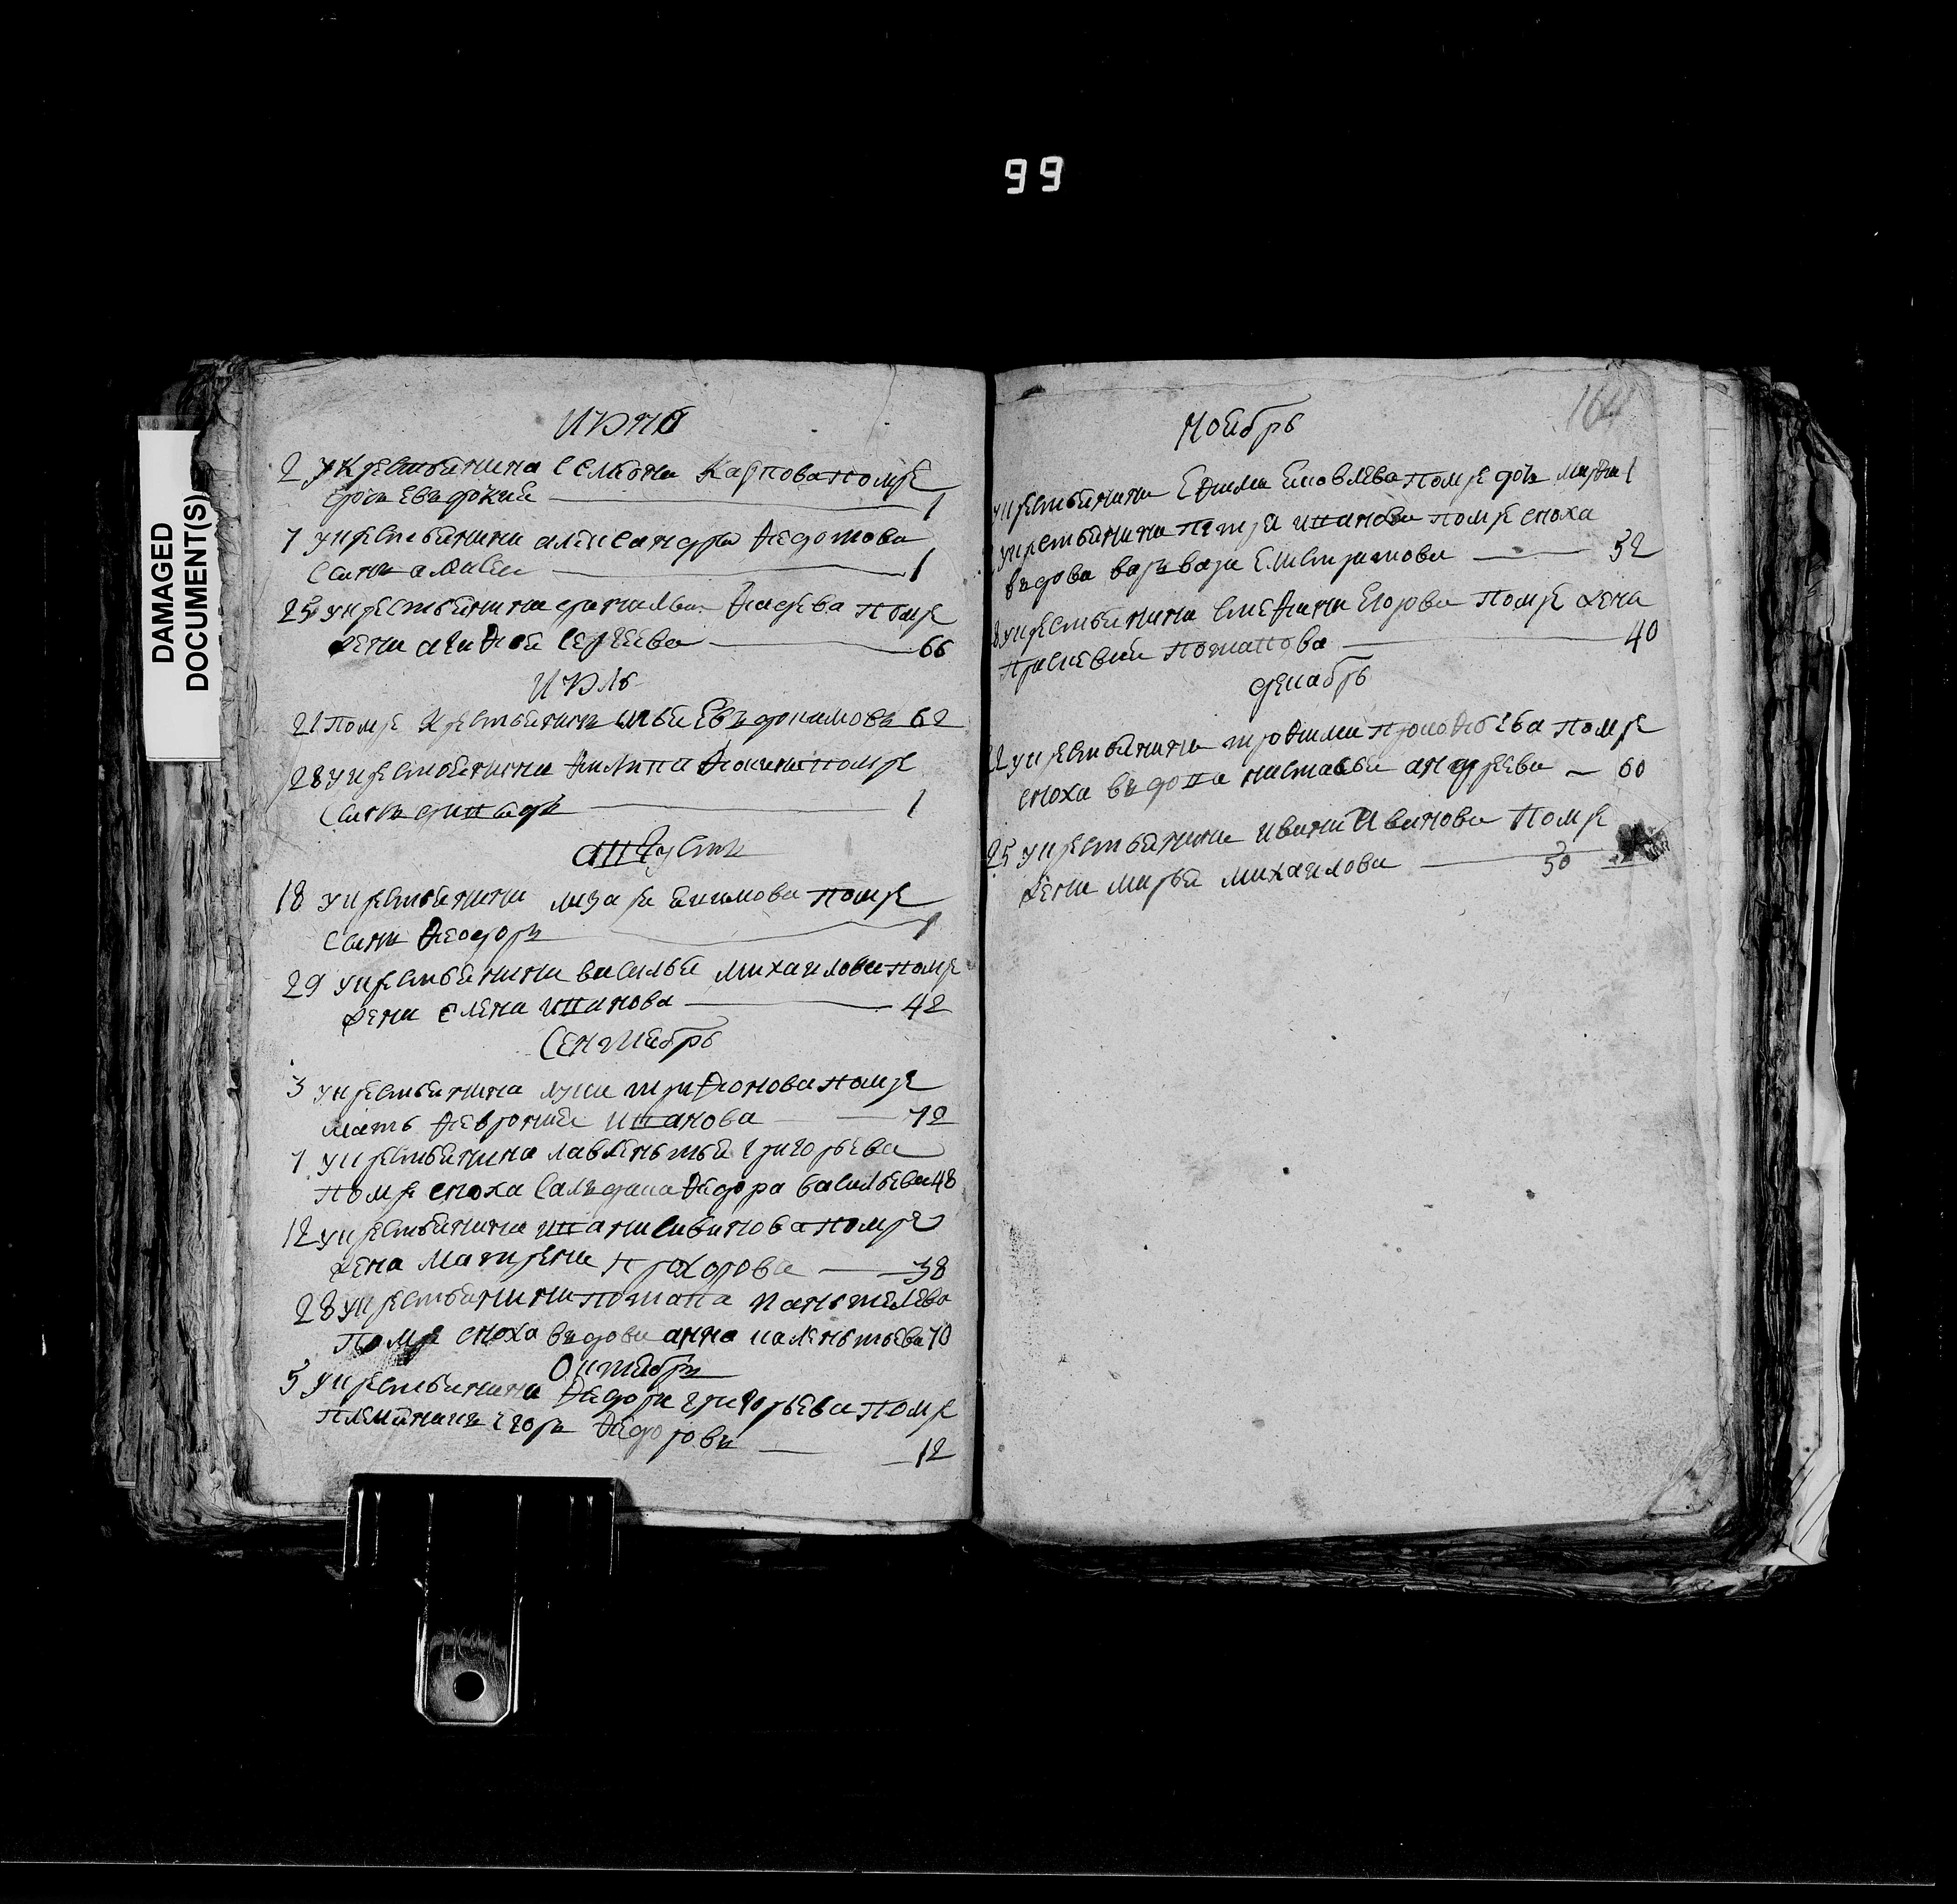 99
DAMAGED
DOCUMENT(S)
июня
2 у крестьянина семиона карпова помре
дочь евъдокия 1
7 у крестьянина александра федотова
сынъ алексеи 1
25 у крестьянина данилы фадеева помре
жена агафья сергеева 66
июль
21 помре крестьянинъ илья евъдокимовъ 62
28 у крестьянина филипа фокина помре
сынъ давыдъ 1
августъ
18 у крестьянина лазаря екимова помре
сынъ феодоръ 1
29 у крестьянина василья михаилова помре
жена елена иванова 42
сентябрь
3 у крестьянина луки трифонова помре
мать феврония иванова 72
7 у крестьянина лавреньтья григорьева
помре сноха салъдака федора васильева 48
12 у крестьянина ивана савинова помре
жена матрена прохорова 38
28 у крестьянина потапа паньтелева
помре сноха въдова анна каленьтьева 70
октябрь
5 у крестьянина федора григорьева помре
племяникъ егоръ федоровъ 12
164
ноябрь
у крестьянина ефима яковлева помре дочь марфа 1
у крестьянина петра иванова помре сноха
въдова варъвара елистратова 52
8 у крестьянина стефана егорова помре жена
прасковия потапова 40
декабрь
22 у крестьянина трофима прокофьева помре
сноха въдова настасья андреева 60
25 у крестьянина ивана иванова помре
жена марья михаилова 50